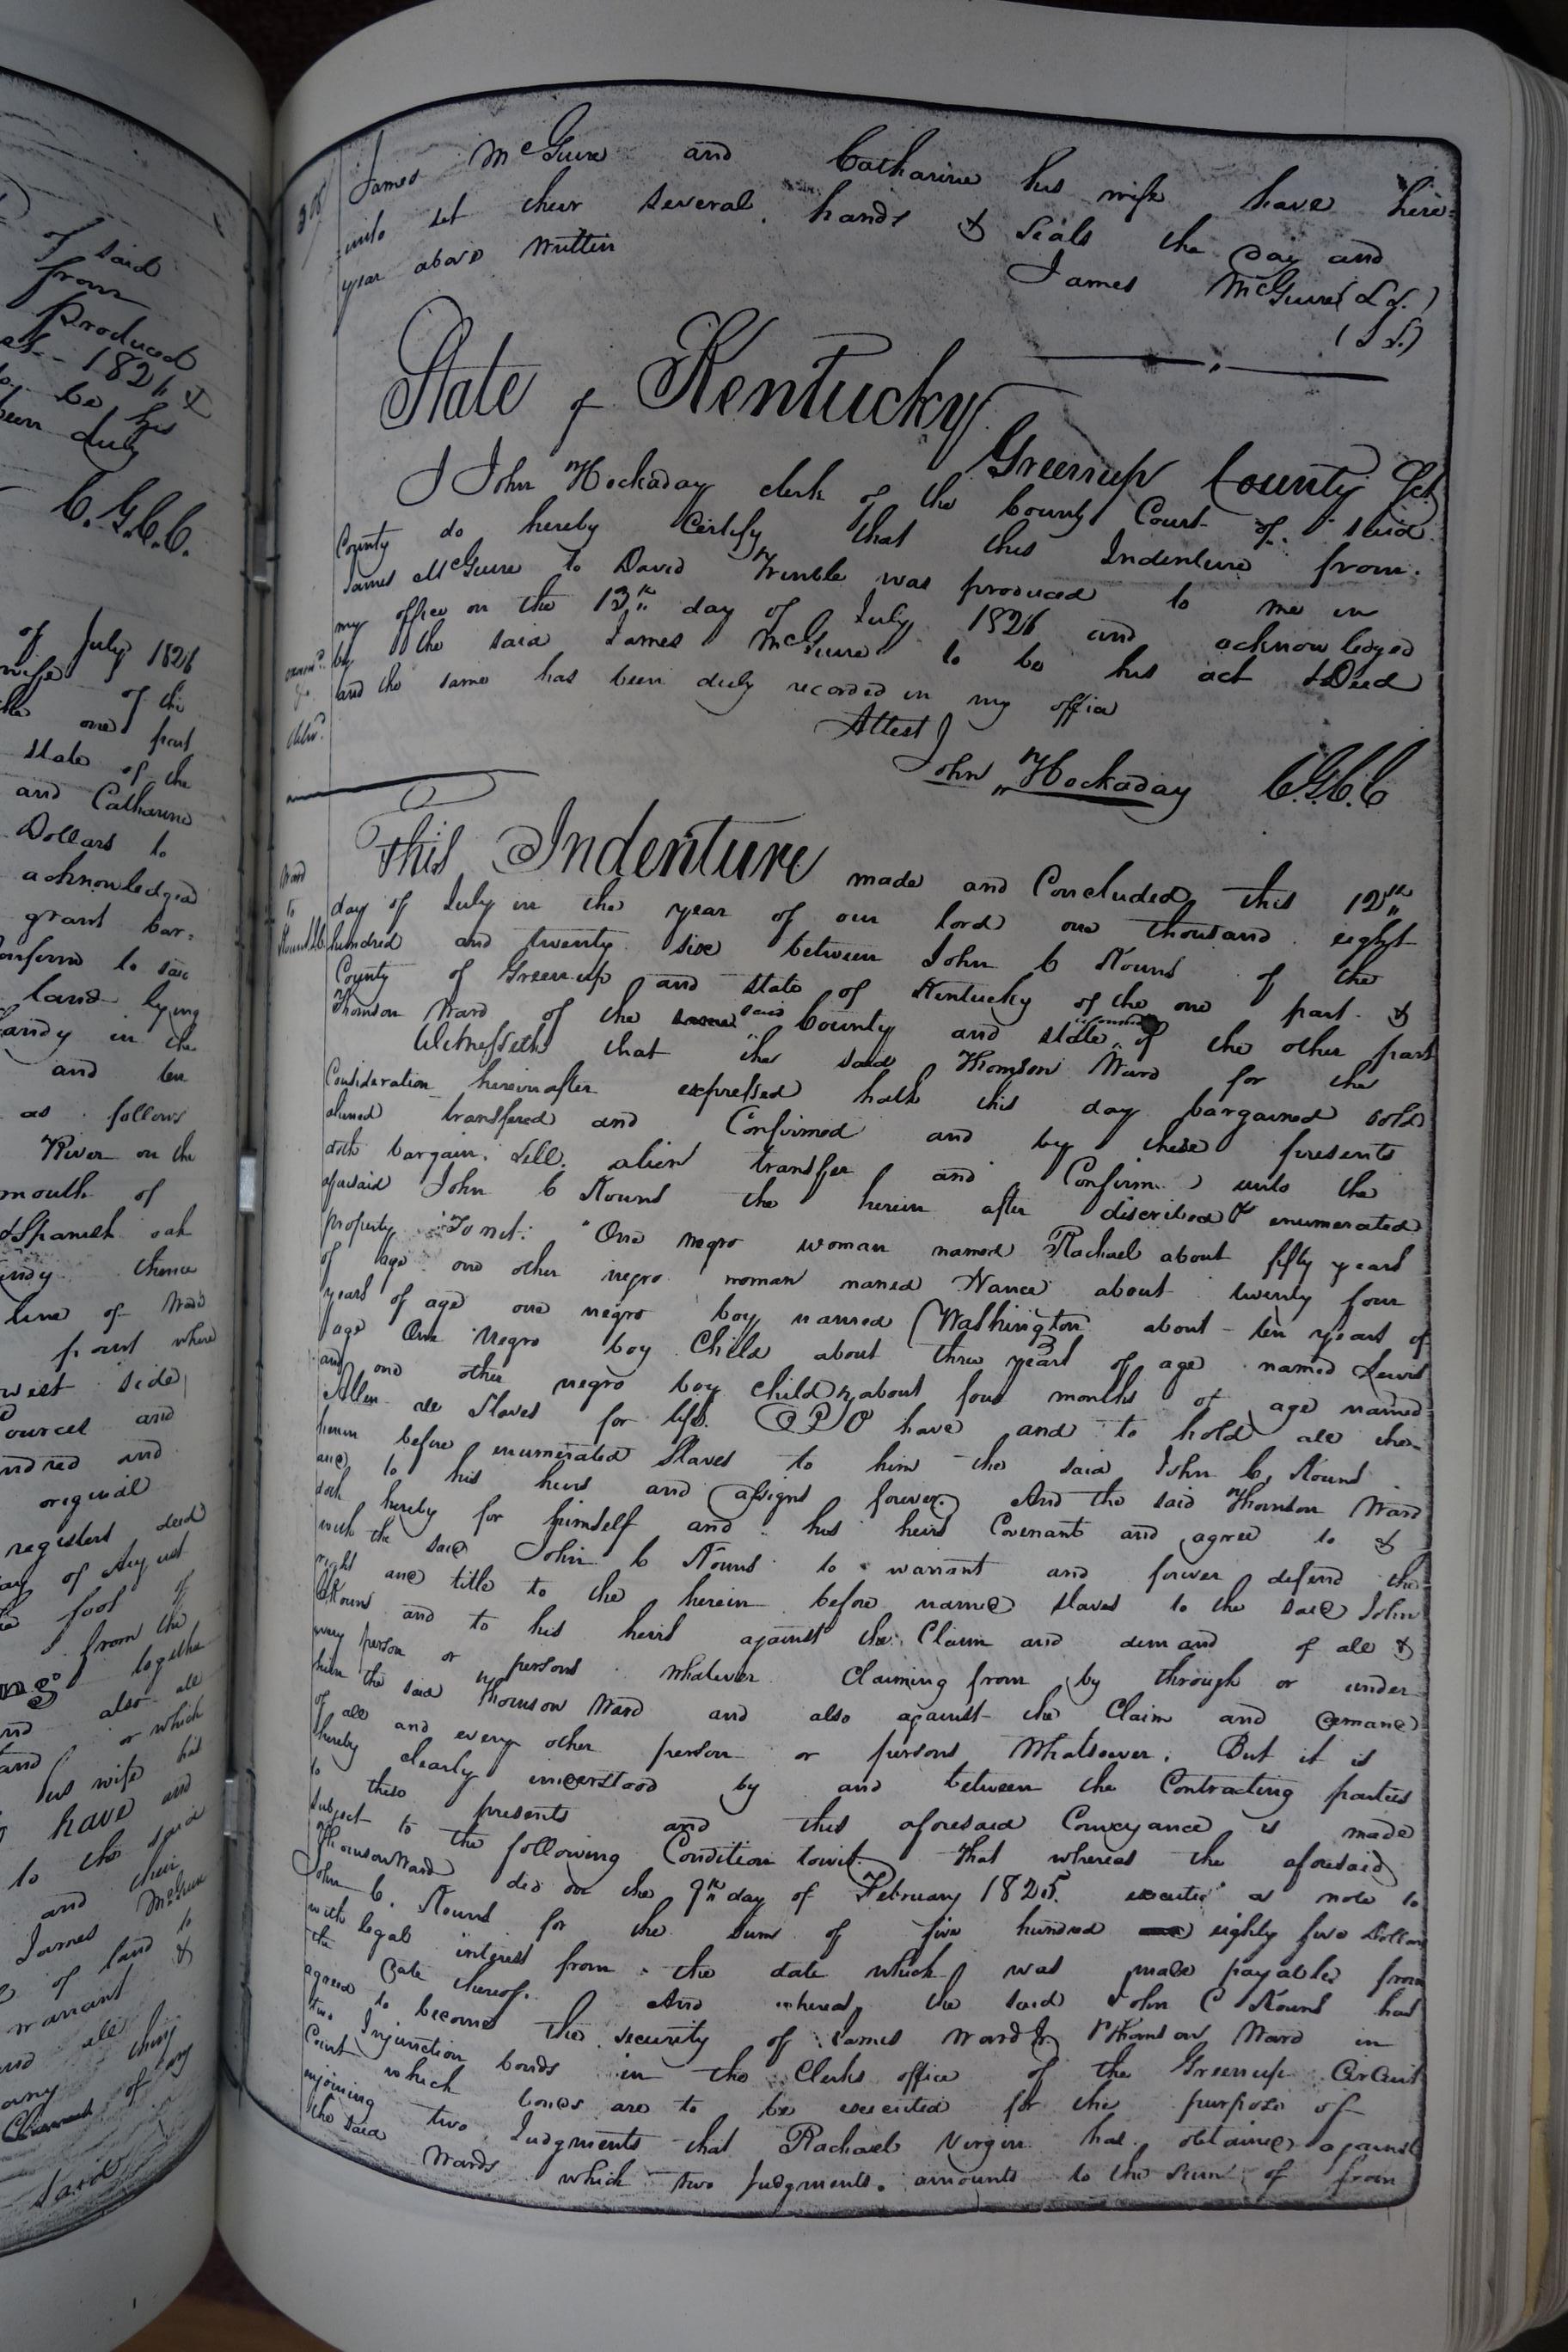 said
from
Produced
1826 &
be his
been duly
C.G.C.C.
of July 1826
wife of the
one part
state of the
and Catharine
Dollars to
acknowledged
grant bar=
confirm to said
land lying
Sandy in the
and ten
as follows
River on the
mouth of
& Spanish oak
Sandy thence
line of Ward
point where
west side
and
and
original
register deed
day of August
foot of
from the
together
and also all
or which
his wife has
have and
to the said
and their
James McGuire
of land to
warrant &
all
any
said
James McGuire and Catharine his wife have here=
=unto set their several hands & seals the day and
year above written
James McGuire (L.S.)
(L.S.)
State of Kentucky
Greenup County Sct
I John Hockaday clerk of the County Court of said
County do hereby Certify that this Indenture from
James McGuire to David Trimble was produced to me in
my office on the 13th day of July 1826 and acknowledged
by the said James McGuire to be his act & Deed
and the same has been duly recorded in my office
Attest
John Hockaday C.G.C.C
Ward
to
This Indenture made and Concluded this 12th
day of July in the year of our lord one thousand eight
hundred and twenty six between John C Kouns of the
County of Greenup and state of Kentucky of the one part &
Thomson Ward of the said County and state of the other part
Witnesseth that the said Thomson Ward for the
Consideration hereinafter expressed hath this day bargained sold
aliened transfered and Confirmed and by these presents
doth bargain, sell, alien transfer and Confirm unto the
aforesaid John C Kouns the herein after discribed & enumerated
property "To wit: "One negro woman named Rachael about fifty years
of age one other negro woman named Nance about twenty four
years of age one negro boy named Washington about ten years of
age One Negro boy Child about three years of age named Lewis
and one other negro boy child about four months of age named
Allen all Slaves for life. To have and to hold all the
herein before enumerated Slaves to him the said John C. Kouns
and to his heirs and assigns forever. And the said Thomson Ward
doth hereby for himself and his heirs Covenant and agree to &
with the said John C Kouns to warrant and forever defend the
right and title to the herein before named slaves to the said John
C Kouns and to his heirs against the Claim and demand of all &
every person or persons whatever Claiming from by through or under
him the said Thomson Ward and also against the Claim and demand
of all and every other person or persons Whatsoever. But it is
hereby clearly understood by and between the Contracting parties
to these presents and this aforesaid Conveyance is made
subject to the following Condition towit. That whereas the aforesaid
Thomson Ward did on the 9th day of February 1825. execute a note to
John C. Kouns for the sum of five hundred eighty five Dollars
with legal interest from the date which was made payable from
the date thereof. And whereas the said John C Kouns has
agreed to become the security of James Ward & Thomson Ward in
two Injunction bonds in the Clerks office of the Greenup Circuit
Court which bonds are to be executed for the purpose of
injoining two Judgments that Rachael Virgin has obtained against
the said Wards which two Judgments amounts to the sum of from